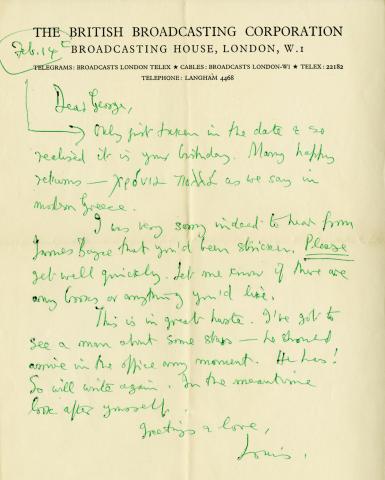 THE BRITISH BROADCASTING CORPORATION
Feb. 14
BROADCASTING HOUSE, LONDON, W.1
TELEGRAMS: BROADCASTS LONDON TELEX ★ CABLES: BROADCASTS LONDON-W1 ★ TELEX: 22182
TELEPHONE: LANGHAM 4468
Dear George,
Only just taken in the date & so
realised it is your birthday. Many happy
returns — χρόνια πολλά as we say in
modern Greece.
I was very sorry indeed to hear from
James Boyce that you'd been stricken. Please
get well quickly. Let me know if there are
any books or anything you'd like.
This is in great haste. I've got to
see a man about some — he should
arrive in the office any moment. He has!
So will write again. In the meantime
look after yourself.
Greetings & love,
Louis.